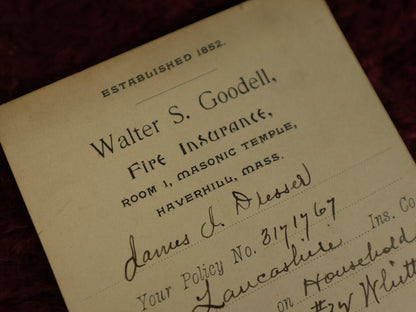 ESTABLISHED 1852.
Walter S. Goodell,
Fire Insurance,
ROOM 1, MASONIC TEMPLE,
HAVERHILL, MASS.
James J. Dresser
Your Policy No. 3171767
Lancashire Ins. Co
on Household